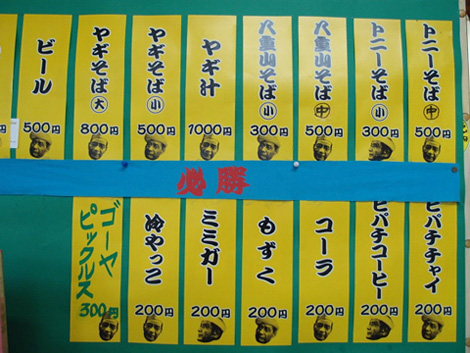 トニーそば
中
500円
トニーそば
小
300円
八重山そば
中
500円
八重山そば
小
300円
ヤギ汁
1000円
ヤギそば
小
500円
ヤギそば
大
800円
ビール
500円
円
必勝
ヒパチチャイ
200円
ヒパチコーヒー
200円
コーラ
200円
もずく
200円
ミミガー
200円
冷やっこ
200円
ゴーヤ
ピックルス
300円